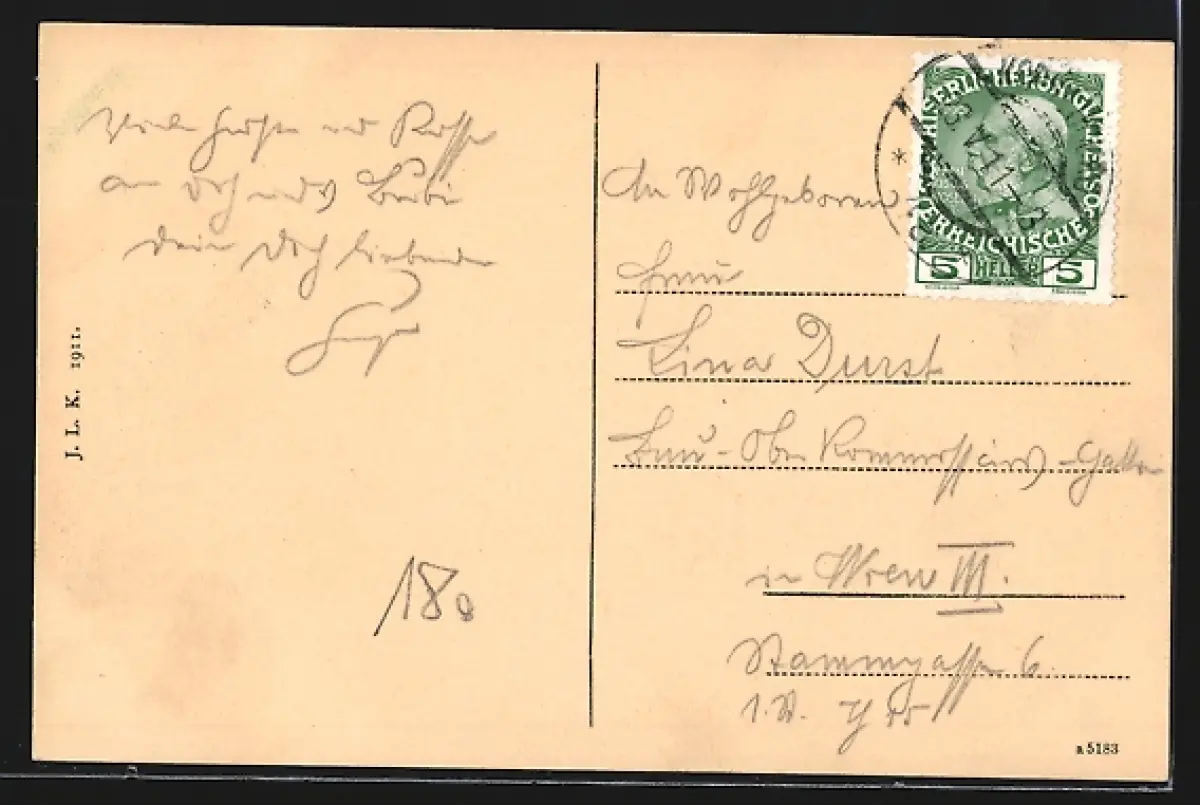 Viele Grüsse und Küsse
an Dich und Bubi
Dein Dich liebender
J. L. K. 1911.
180
An Wohlgeboren
Frau
Lina Durst
Bau-Ober Kommissärs-Gattin
in Wien III.
Stammgasse 6
1. St.
KAISERLICHE KÖNIGLICHE
ÖSTERREICHISCHE
5 HELLER 5
a 5183